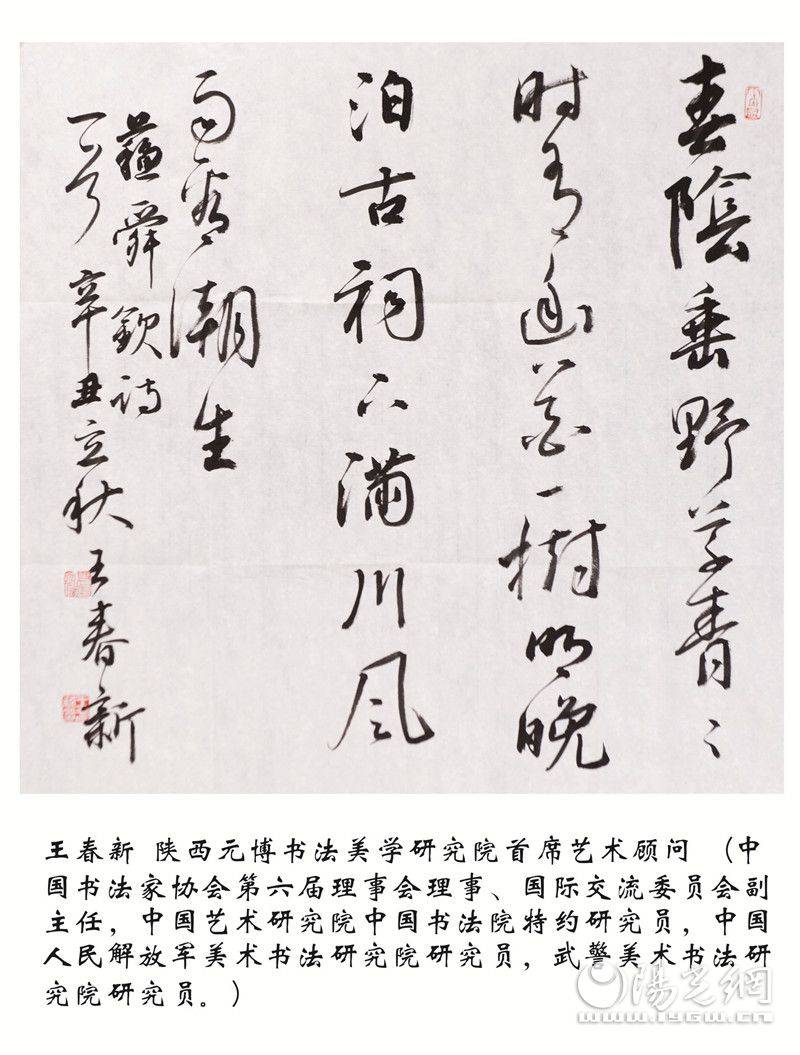 春陰垂野草青〻
时有幽花一樹明晚
泊古祠下满川风
雨看潮生
蘇舜欽诗
一首 辛丑立秋 王春新
王春新 陕西元博书法美学研究院首席艺术顾问 （中
国书法家协会第六届理事会理事、国际交流委员会副
主任，中国艺术研究院中国书法院特约研究员，中国
人民解放军美术书法研究院研究员，武警美术书法研
究院研究员。）
陽光網
www.iygw.cn